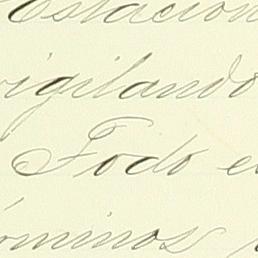 Estacion
vigilando
Todo e
óminos